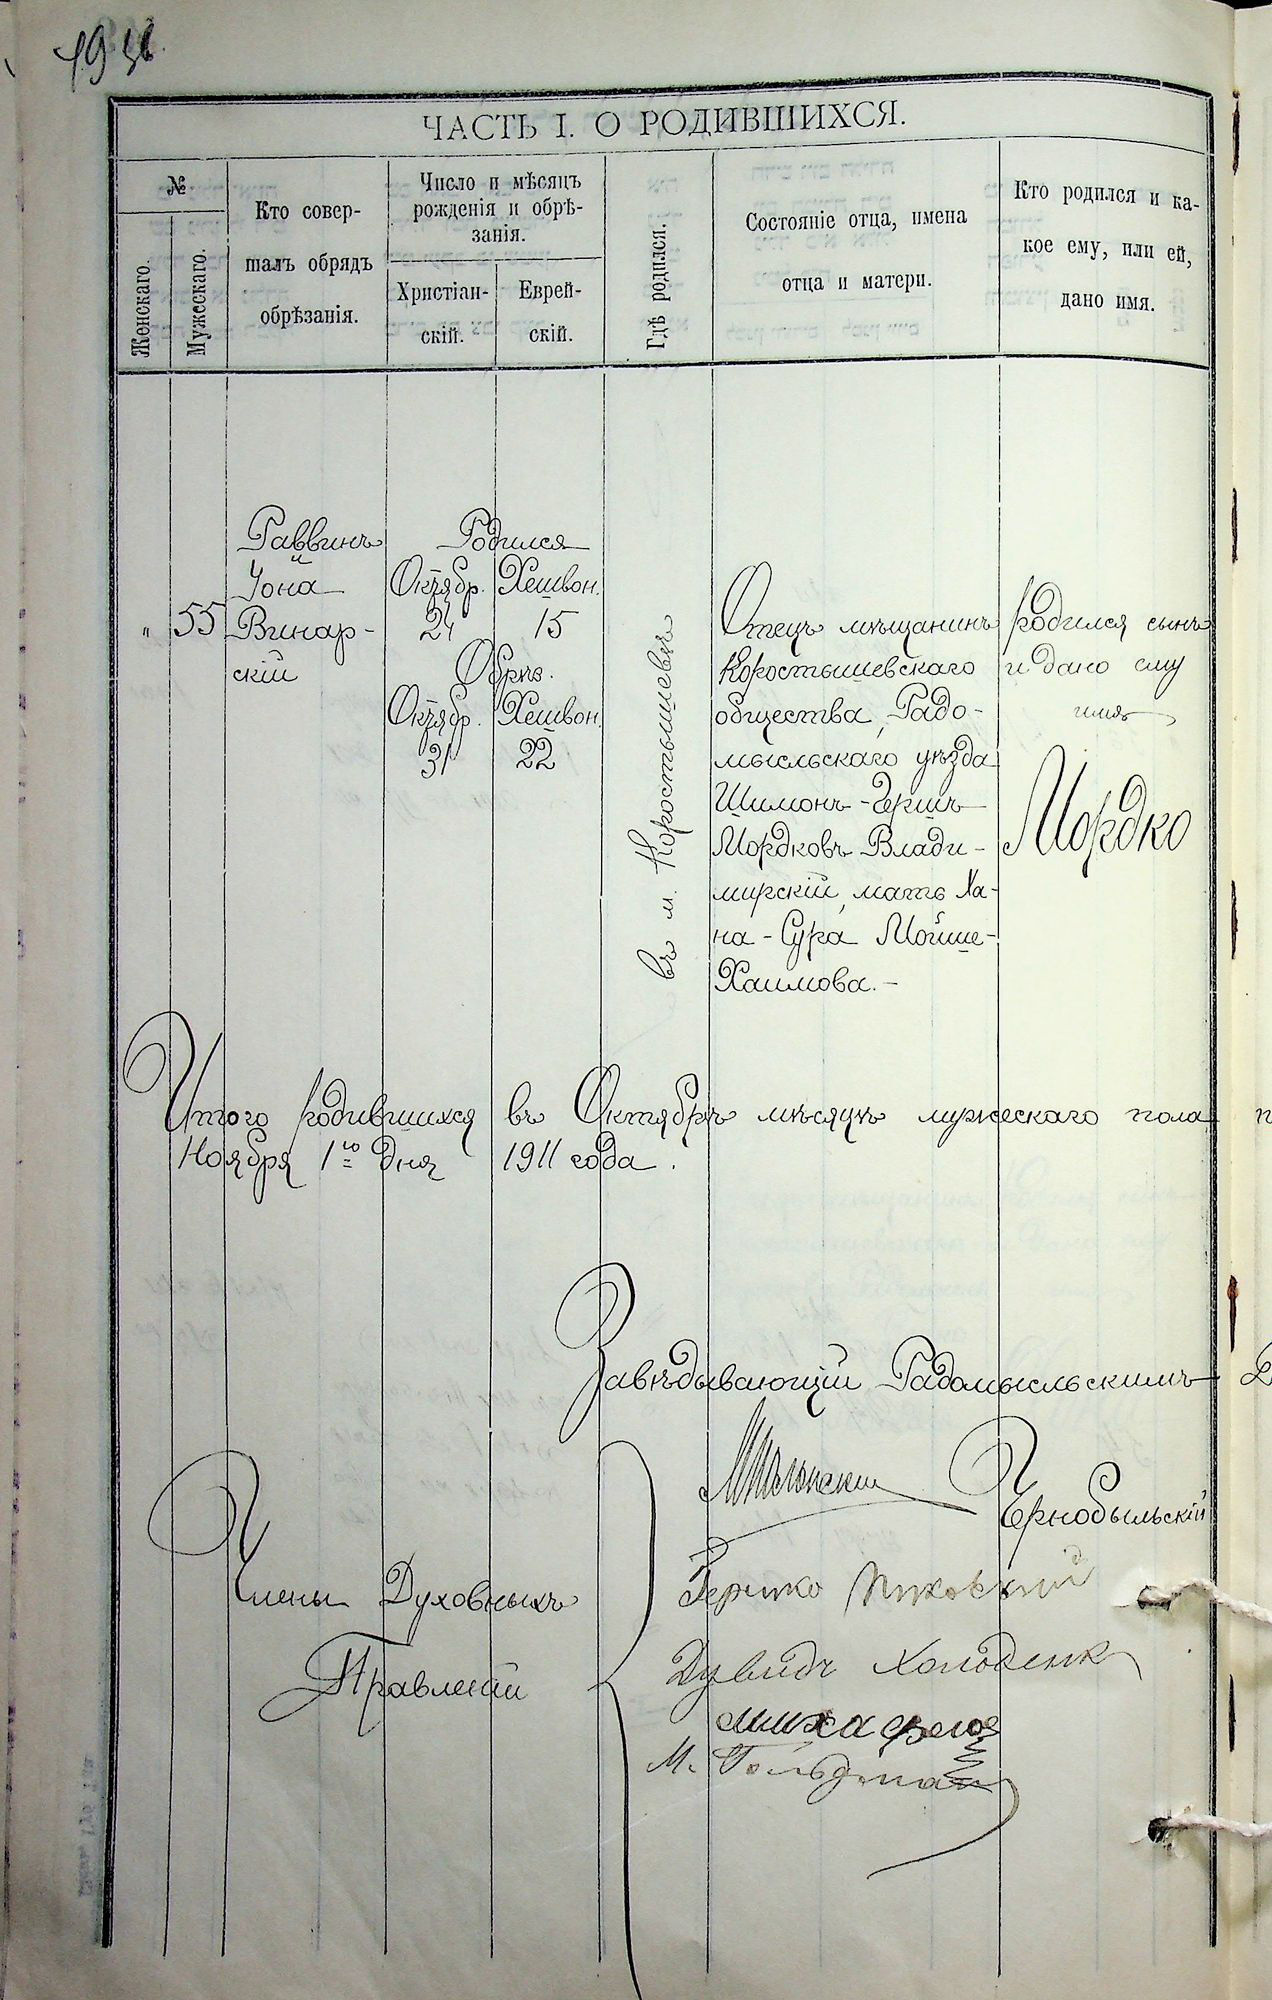 ЧАСТЬ I. О РОДИВШИХСЯ.
№
Женскаго.
Мужескаго.
Кто совер-
шалъ обрядъ
обрѣзанія.
Число и мѣсяцъ
рожденія и обрѣ-
занія.
Христіан-
скій.
Еврей-
скій.
Гдѣ родился.
Состояніе отца, имена
отца и матери.
Кто родился и ка-
кое ему, или ей,
дано имя.
"
55
Раввинъ
и
Іона
Винар-
скій
Родился
Октябр. Хешвон.
24 15
Обрѣз.
Октябр. Хешвон.
31 22
въ м. Коростышевѣ
Отецъ мѣщанинъ
Коростышевскаго
общества, Радо-
мысльскаго уѣзда
Шимонъ-Гершъ
Мордковъ Влади-
мирскій, мать Ха-
на-Сура Мойше-
Хаимова.-
Родился сынъ
и дано ему
имя
Мордко
Итого родившихся въ Октябрѣ мѣсяцѣ мужескаго пола
Ноября 1го дня 1911 года.
Завѣдывающій Радомысльскимъ
Чернобыльскій
Члены Духовныхъ
Правленій
Дувидъ Холоденк
М. Гольдман